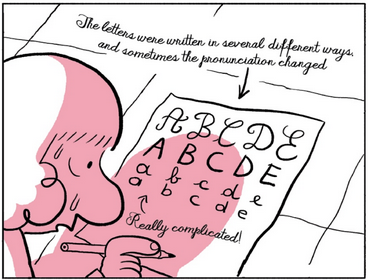 The letters were written in several different ways,
and sometimes the pronunciation changed
A B C D E
A B C D E
a b c d e
a b c d e
Really complicated!